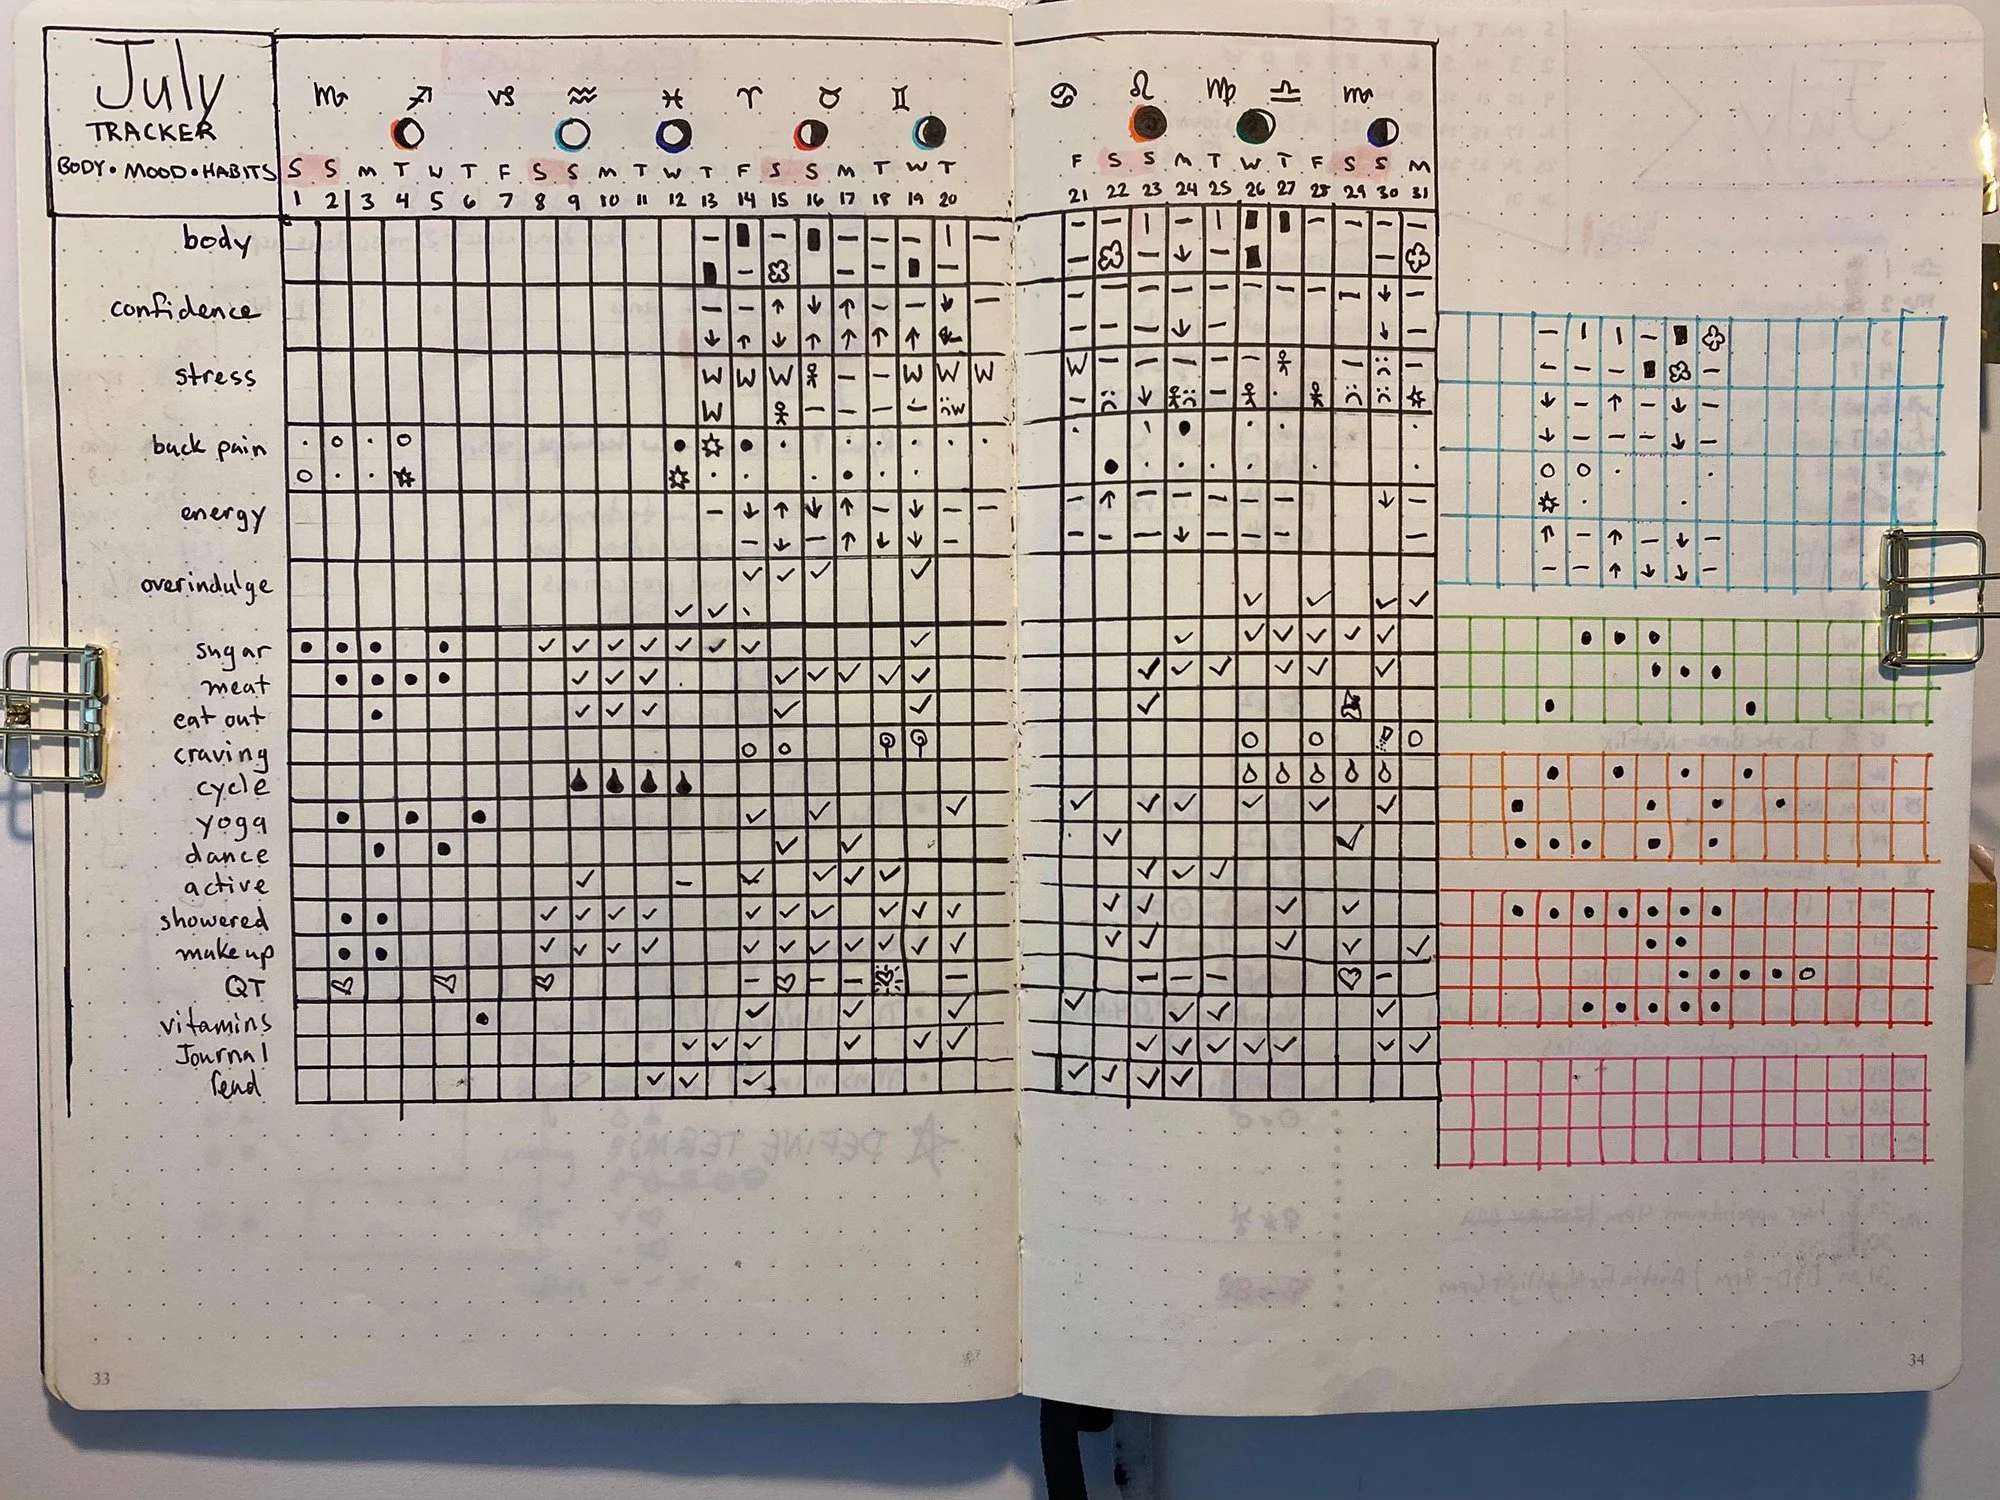 July
TRACKER
BODY • MOOD • HABITS
♏ ♐ ♑ ♒ ♓ ♈ ♉ ♊ ♋ ♌ ♍ ♎ ♏
S S M T W T F S S M T W T F S S M T W T F S S M T W T F S S M
1 2 3 4 5 6 7 8 9 10 11 12 13 14 15 16 17 18 19 20 21 22 23 24 25 26 27 28 29 30 31
body
confidence
stress
W W W W W W W
W W
back pain
energy
overindulge
sugar
meat
eat out
craving
cycle
yoga
dance
active
showered
makeup
QT
vitamins
Journal
read
33
34